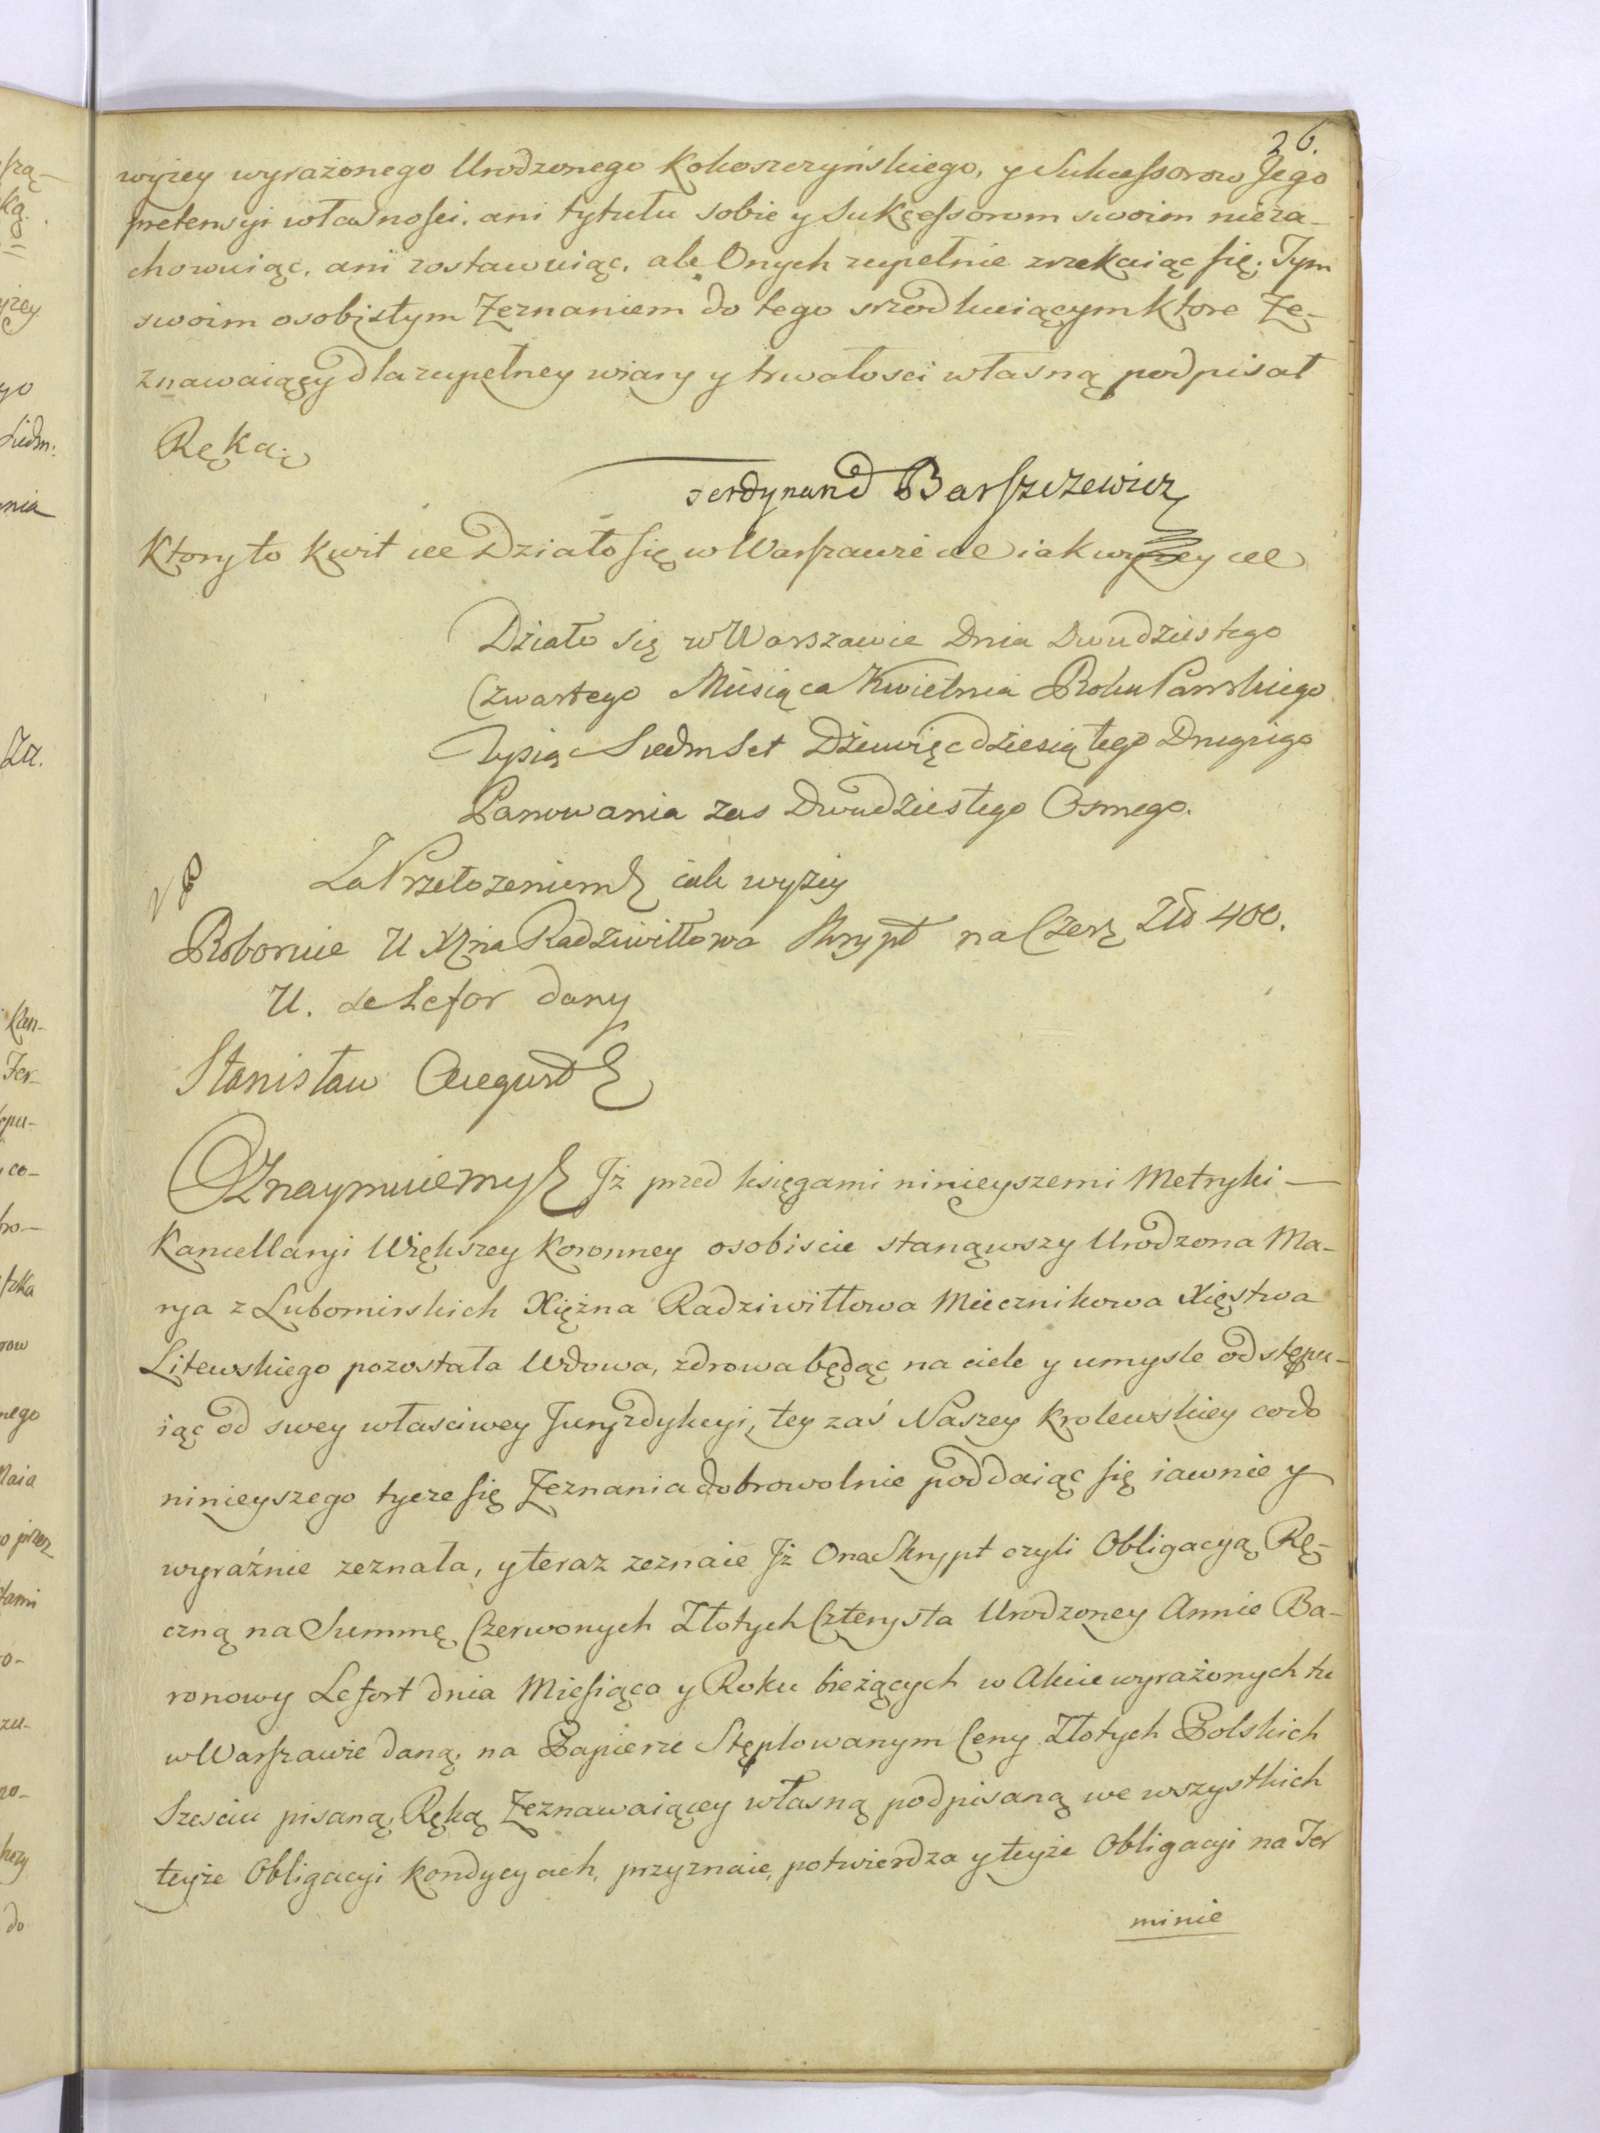 26.
wyżey wyrażonego Urodzonego Kokoszczyńskiego, y Sukcessorow Jego
pretensyi własnosci. ani tytułu sobie y Sukcessorom swoim nieza-
chowuiąc, ani zostawuiąc, ale Onych zupełnie zrzekaiąc się. Tym
swoim osobistym Zeznaniem do tego srzodkuiącym ktore Ze-
znawaiący dla zupełney wiary y trwałosci własną podpisał
Ręką.
Ferdynand Barszczewicz
Ktory to Kwit etc Działo się w Warszawie etc iak wyżey etc
Działo się w Warszawie Dnia Dwudziestego
Czwartego Miesiąca Kwietnia Roku Pańskiego
Tysiąc Siedmset Dziewięćdziesiątego Drugigo
Panowania zas Dwudziestego Osmego.
Za Przełozeniem iak wyzey
Roboruie U Xżna Radziwiłłowa Skrypt na Czer: Złł 400.
U. de Lefor dany
Stanisław August
Oznaymuiemy Jż przed księgami ninieyszemi Metryki
Kancellaryi Większey Koronney osobiscie stanąwszy Urodzona Ma-
rya z Lubomirskich Xiężna Radziwiłłowa Miecznikowa Xięstwa
Litewskiego pozostała Wdowa, zdrowa będąc na ciele y umysle odstępu-
iąc od swey własciwey Juryzdykcyi, tey zaś Naszey Krolewskiey co do
ninieyszego tycze się Zeznania dobrowolnie poddaiąc się iawnie y
wyraźnie zeznała, y teraz zeznaie Jż Ona Skrypt czyli Obligacyą Rę-
czną na Summę Czerwonych Złotych Czterysta Urodzoney Annie Ba-
ronowy Lefort dnia Miesiąca y Roku bieżących w Akcie wyrażonych tu
w Warszawie daną, na Papierze Stęplowanym Ceny Złotych Polskich
Szesciu pisaną, Ręką Zeznawaiącey własną podpisaną we wszystkich
teyże Obligacyi Kondycyach, przyznaie, potwierdza y teyże Obligacyi na Ter
minie